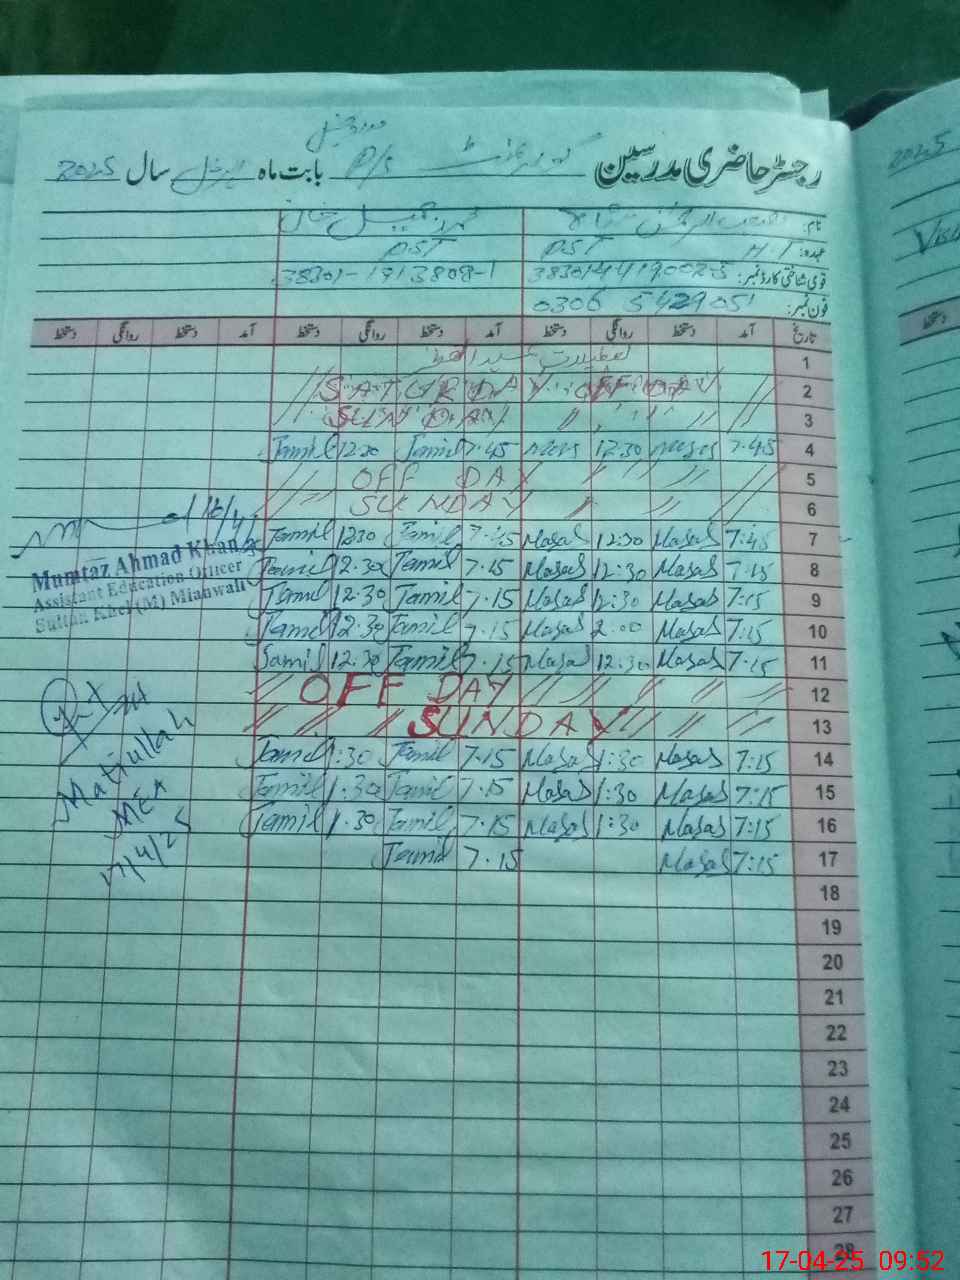 رجسٹر حاضری مدرسین گورنمنٹ P/S بابت ماہ اپریل سال 2025
نام:
محمد جمیل خان
عہدہ: H.T PST PST
قومی شناختی کارڈ نمبر: 38301-1913808-1
فون نمبر: 0306
تاریخ آمد دستخط روانگی دستخط آمد دستخط روانگی دستخط آمد دستخط روانگی دستخط
1 تعطیلات عید الفطر
2 SATURDAY OFF DAY
3 SUNDAY
4 7.45 12:30 7.45 Jamil 12.30 Jamil
5 OFF DAY
6 SUNDAY
7 7:45 Masas 12:30 Masas 7.45 Jamil 12.30 Jamil
8 7:15 Masas 12:30 Masas 7.15 Jamil 12.30 Jamil
9 7:15 Masas 12:30 Masas 7.15 Jamil 12.30 Jamil
10 7:15 Masas 2.00 Masas 7.15 Jamil 12.30 Jamil
11 7.15 Masas 12:30 Masas 7.15 Jamil 12.30 Jamil
12 OFF DAY
13 SUNDAY
14 7:15 Masas 1:30 Masas 7.15 Jamil 1:30 Jamil
15 7:15 Masas 1:30 Masas 7.15 Jamil 1.30 Jamil
16 7:15 Masas 1:30 Masas 7.15 Jamil 1.30 Jamil
17 7:15 Masas 7.15 Jamil
18
19
20
21
22
23
24
25
26
27
28
Mumtaz Ahmad Khan
Assistant Education Officer
Sultan Khel (M) Mianwali
Matiullah
MEA
17/4/25
2025
دستخط
17-04-25 09:52